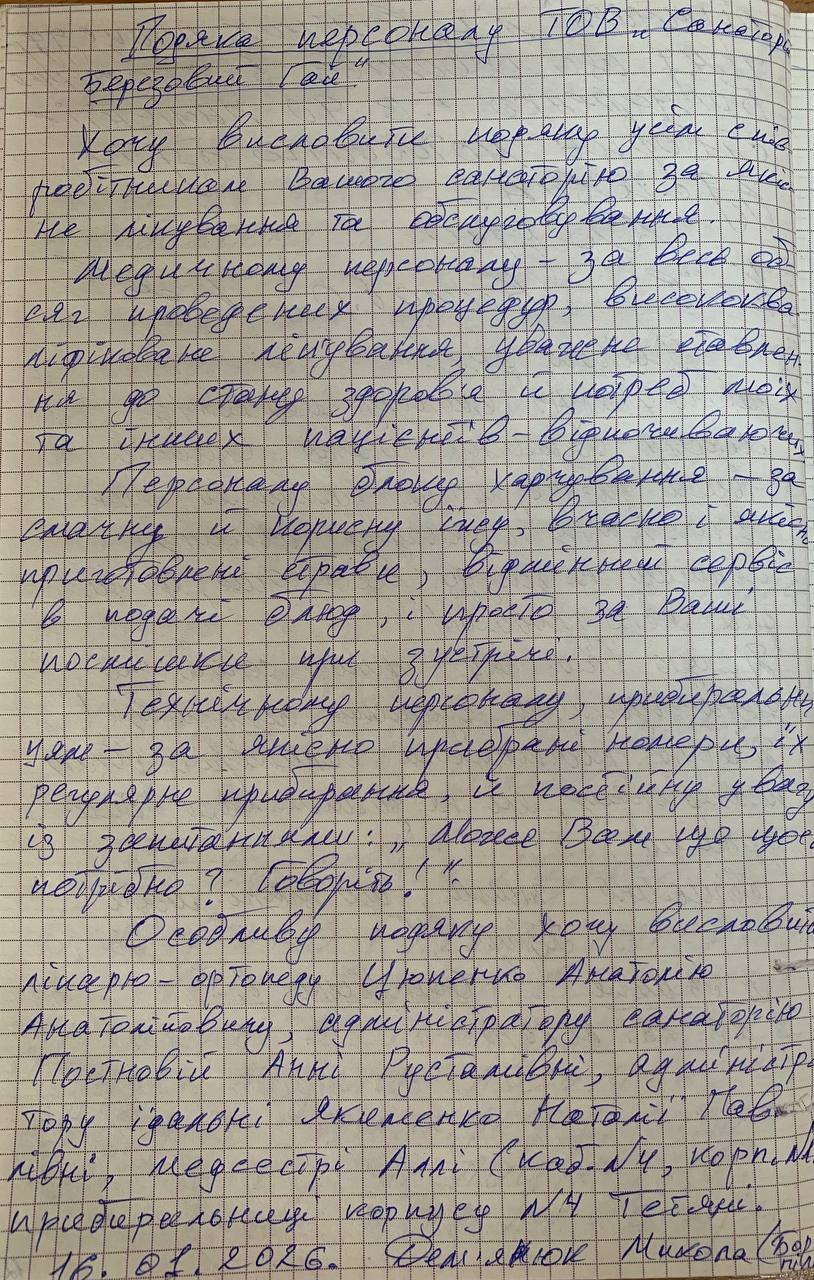 Подяка персоналу ТОВ „Санаторі
Березовий Гай"
Хочу висловити подяку усім спів-
робітникам Вашого санаторію за якіс
не лікування та обслуговування.
Медичному персоналу – за весь об
сяг проведених процедур, висококва
ліфіковане лікування, уважне ставлен-
ня до стану здоров'я й потреб моїх
та інших пацієнтів – відпочиваючих
Персоналу блоку харчування – за
смачну й корисну їжу, вчасно і якісно
приготовлені страви, відмінний сервіс
в подачі блюд, і просто за Ваші
посмішки при зустрічі.
Технічному персоналу, прибиральни
цям – за якісно прибрані номери, їх
регулярне прибирання, й постійну увагу
із запитаннями: „Може Вам ще щось
потрібно? Говоріть!".
Особливу подяку хочу висловити
лікарю-ортопеду Цюпенко Анатолію
Анатолійовичу, адміністратору санаторію
Постновій Анні Русталівні, адміністра
тору їдальні Якименко Наталії Пав-
лівні, медсестрі Аллі (каб. №4, корп. №1
прибиральниці корпусу №4 Тетяні.
16.01.2026. Дем'янюк Микола